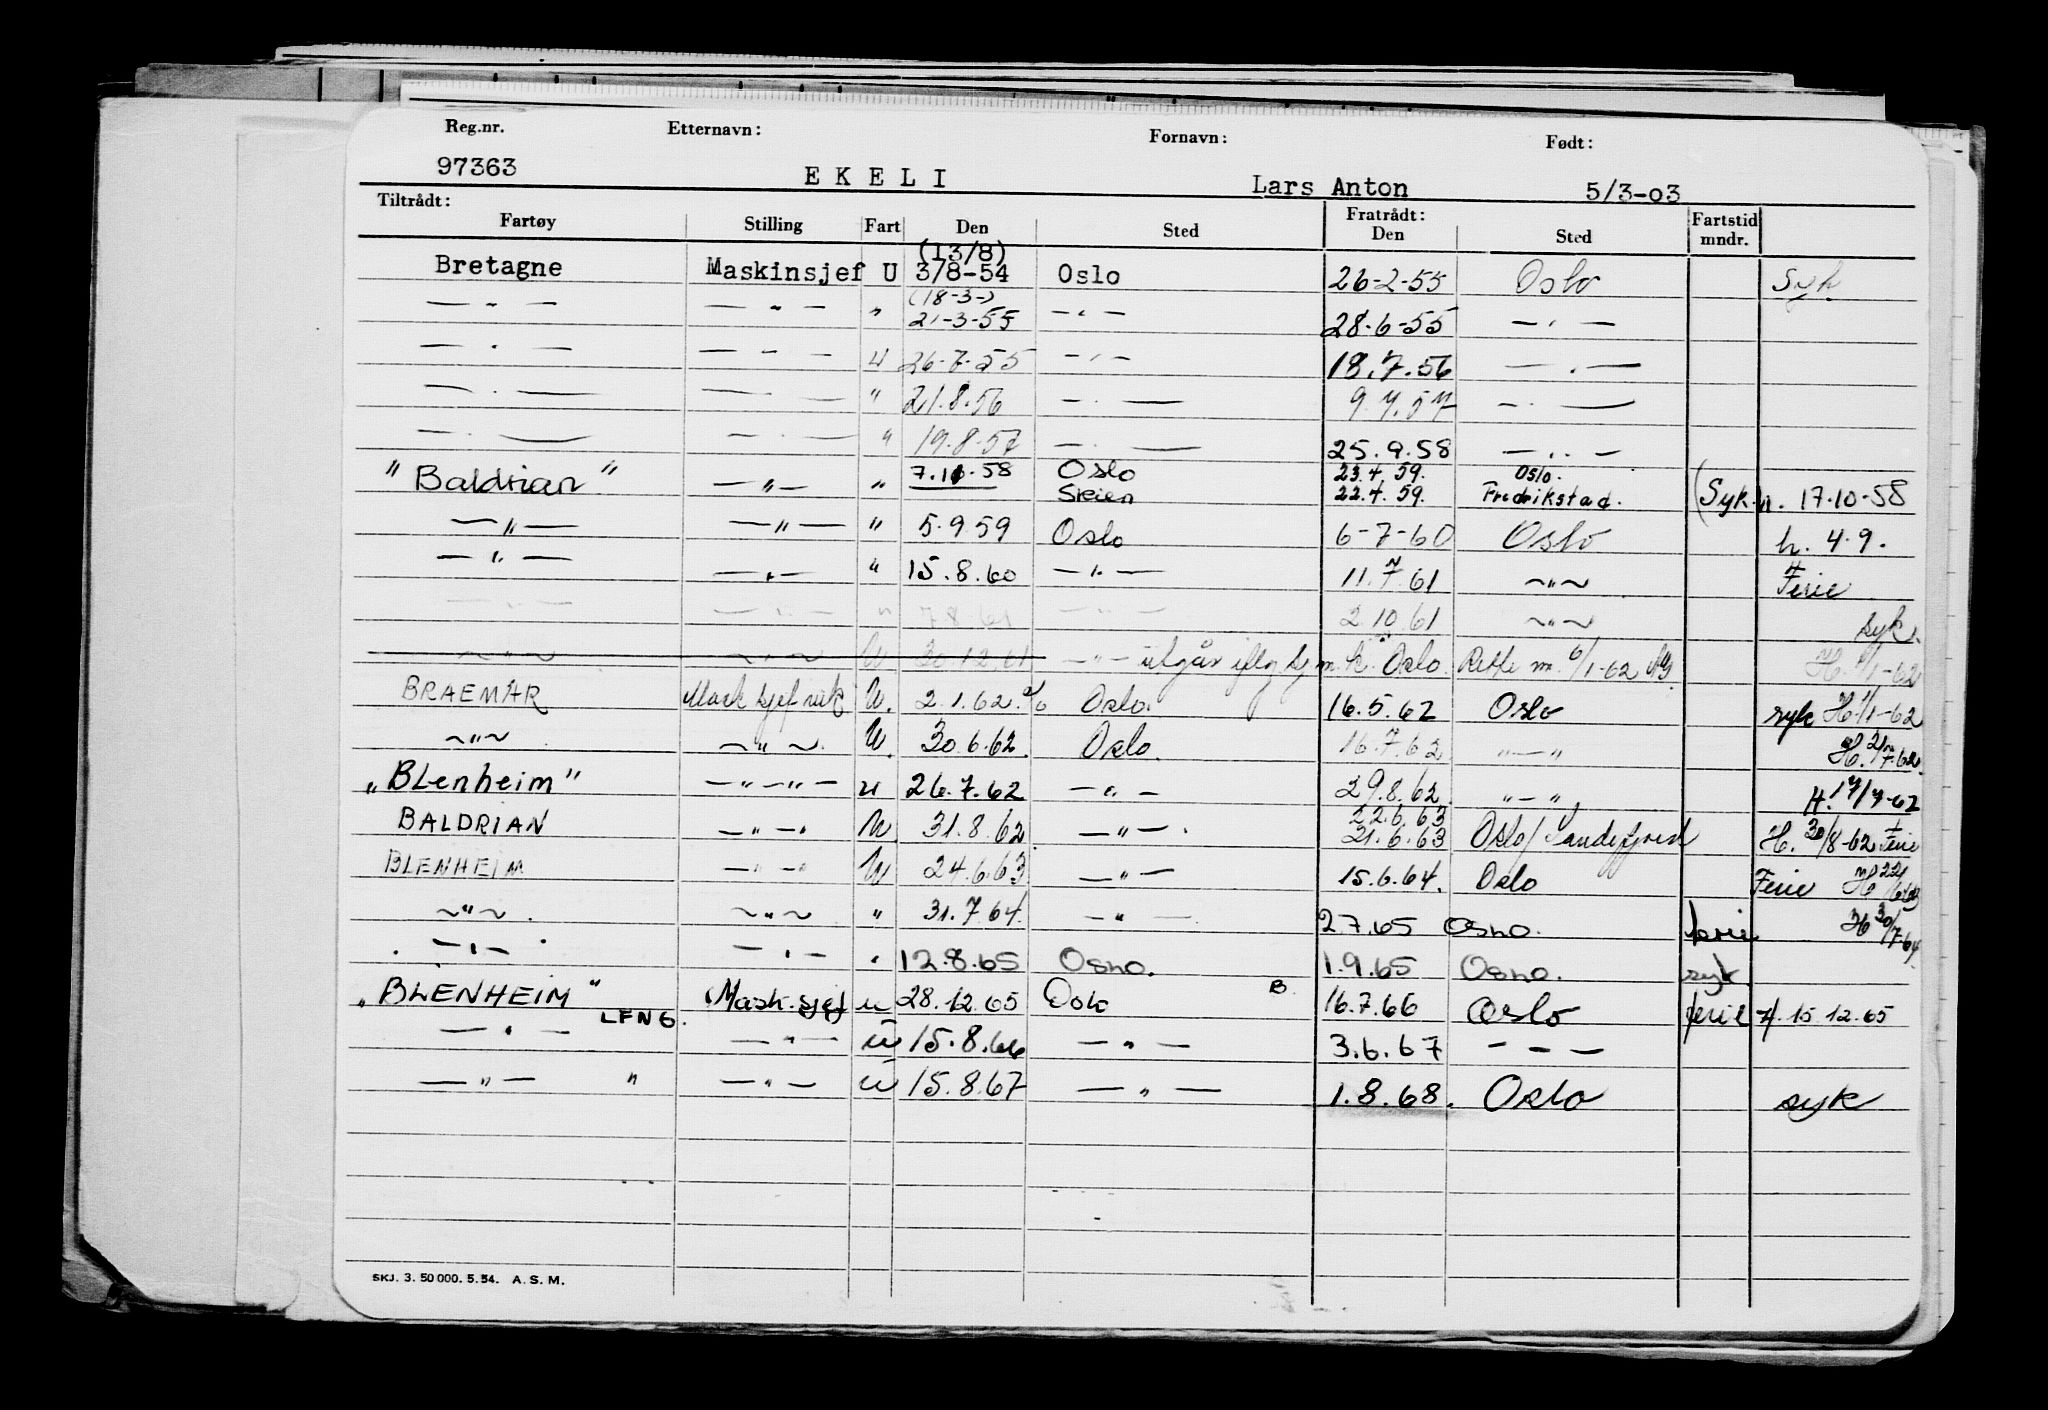 Reg.nr. Etternavn: Fornavn: Født:
97363 EKELI Lars Anton 5/3-03
Tiltrådt: Fratrådt:
Fartøy Stilling Fart Den Sted Den Sted Fartstid mndr.
(13/8)
Bretagne Maskinsjef U 3/8-54 Oslo 26-2-55 Oslo Syk
(18-3-)
— " — — " — " 21-3-55 — " — 28-6-55 — " —
— " — — " — U 26-7-55 — " — 18.7.56 — " —
— " — — " — " 21.8.56 — " — 9.7.57 — " —
— " — — " — " 19.8.57 — " — 25.9.58 — " —
"Baldrian" — " — " 7.10.58 Oslo 23.4.59. Oslo.
Skien 22.4.59. Fredrikstad. (Syk. h. 17-10-58
— " — — " — " 5.9.59 Oslo 6-7-60 Oslo h. 4.9.
— " — — " — " 15.8.60 — " — 11.7.61 ~ " ~ Ferie
— " — — " — " 7.8.61 — " — 2.10.61 ~ " ~ syk.
~ " ~ ~ " ~ U 30.12.61 — " — utgår m.k. Oslo. 6/1-62
BRAEMAR Mask sjef U. 2.1.62 Oslo. 16.5.62 Oslo syk H. 1/1-62
~ " ~ ~ " ~ U. 30.6.62 Oslo. 16.7.62 " — "
"BLenheim" — " — " — u 26.7.62 — " — 29.8.62 " — "
22.6.63
BALDRIAN — " — U. 31.8.62 — " — 21.6.63 Oslo/Sandefjord H. 30/8-62 Ferie
BLENHEIM — " — U 24.6.63 — " — 15.6.64. Oslo Ferie
~ " ~ ~ " ~ " 31.7.64 — " — 2.7.65 Osno. ferie H 30/7-64
— " — — " — " 12.8.65 Osno. 1.9.65 Osno. syk
"BLENHEIM" Mask.sjef u 28.12.65 Oslo B. 16.7.66 Oslo ferie H. 15.12.65
LFNG.
— " — — " — u 15.8.66 — " — 3.6.67 — — —
— " — " — " — u 15.8.67 — " — 1.8.68. Oslo syk
SKJ. 3. 50 000. 5.54. A. S. M.